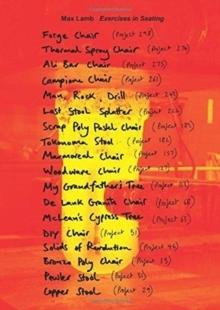 Max Lamb Exercises in Seating
Forge Chair (Project 298)
Thermal Spray Chair (Project 276)
Ali Bar Chair (Project 275)
Campione Chair (Project 261)
Man, Rock, Drill (Project 247)
Last Stool Splatter (Project 226)
Scrap Poly Pastel Chair (Project 189)
Tokonoma Stool (Project 181)
Marmoreal Chair (Project 157)
Woodware Chair (Project
My Grandfather's Tree (Project
De Lank Granite Chair (Project 68)
McLean's Cypress Tree (Project 63)
DIY Chair (Project 51)
Solids of Revolution (Project 44)
Bronze Poly Chair (Project 13)
Pewter Stool (Project 31)
Copper Stool (Project 29)